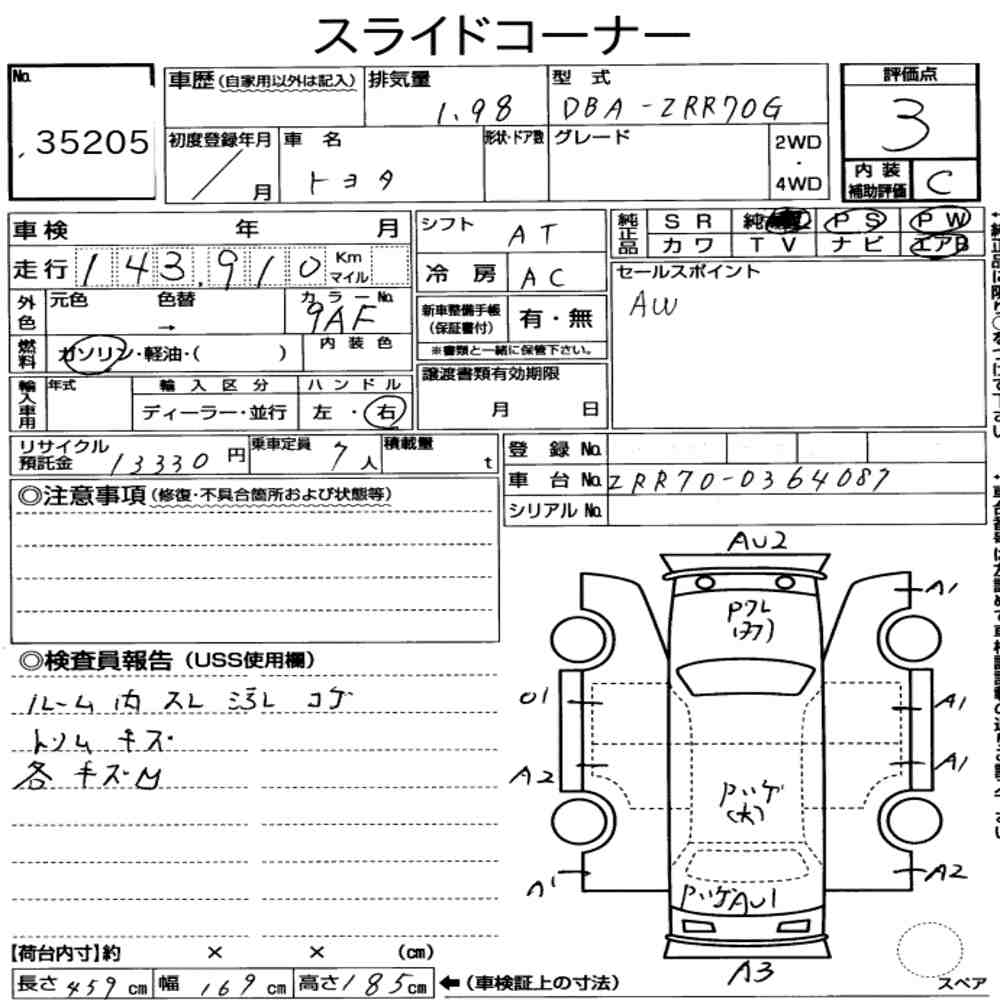 スライドコーナー
No. 35205
車歴 (自家用以外は記入) 排気量 1.98 型式 DBA-ZRR70G 評価点 3
初度登録年月 / 月 車名 トヨタ 形状・ドア数 グレード 2WD・4WD 内装補助評価 C
車検 年 月 シフト AT 純正品 SR PS PW
走行 143,910 Km マイル 冷房 AC カワ TV ナビ エアB
外色 元色 色替 → カラーNo. 9AF 新車整備手帳(保証書付) 有・無 セールスポイント AW
※書類と一緒に保管下さい。
燃料 ガソリン・軽油・( ) 内装色 譲渡書類有効期限 月 日
輸入車用 年式 輸入区分 ディーラー・並行 ハンドル 左・右
リサイクル預託金 13330円 乗車定員 7人 積載量 t 登録No.
車台No. ZRR70-0364087
シリアルNo.
◎注意事項 (修復・不具合箇所および状態等)
◎検査員報告 (USS使用欄)
ルーム内 スレ 汚レ コゲ
トリム キズ
各 キズ凹
AU2
A1
Pワレ
O1 A1
A2 A1
Pハゲ
(大)
A1 A2
Pハゲ AU1
A3
スペア
【荷台内寸】約 × × (cm)
長さ 459cm 幅 169cm 高さ 185cm ←(車検証上の寸法)